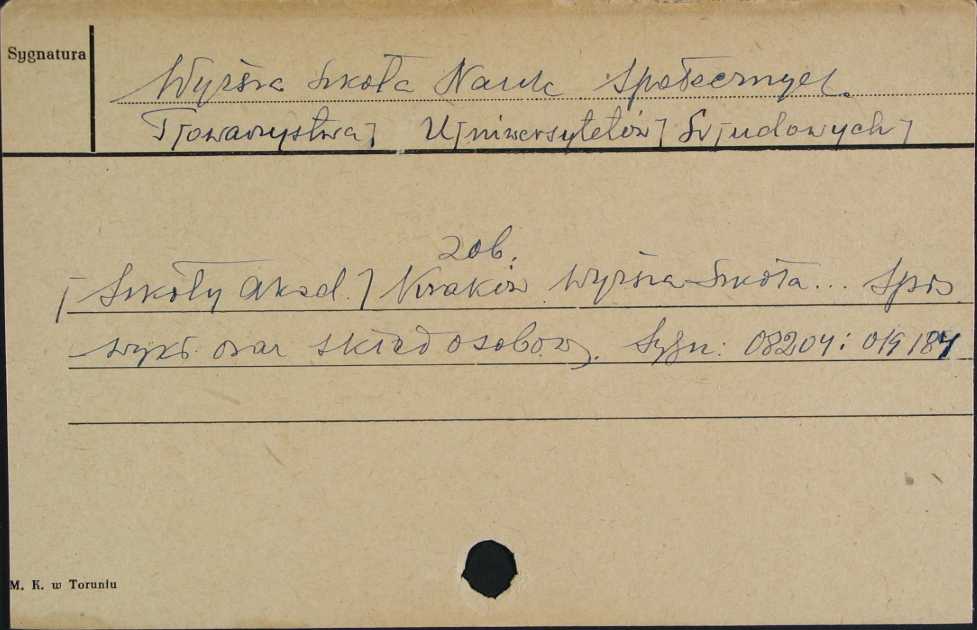 Sygnatura
Wyższa Szkoła Nauk Społecznych.
T[owarzystwa] U[niwersytetów] L[udowych]
zob.
[Szkoły Akad.] Kraków Wyższa Szkoła... Spis
wykł. oraz skład osobow. Sygn: 08204: 019 184
M. K. w Toruniu